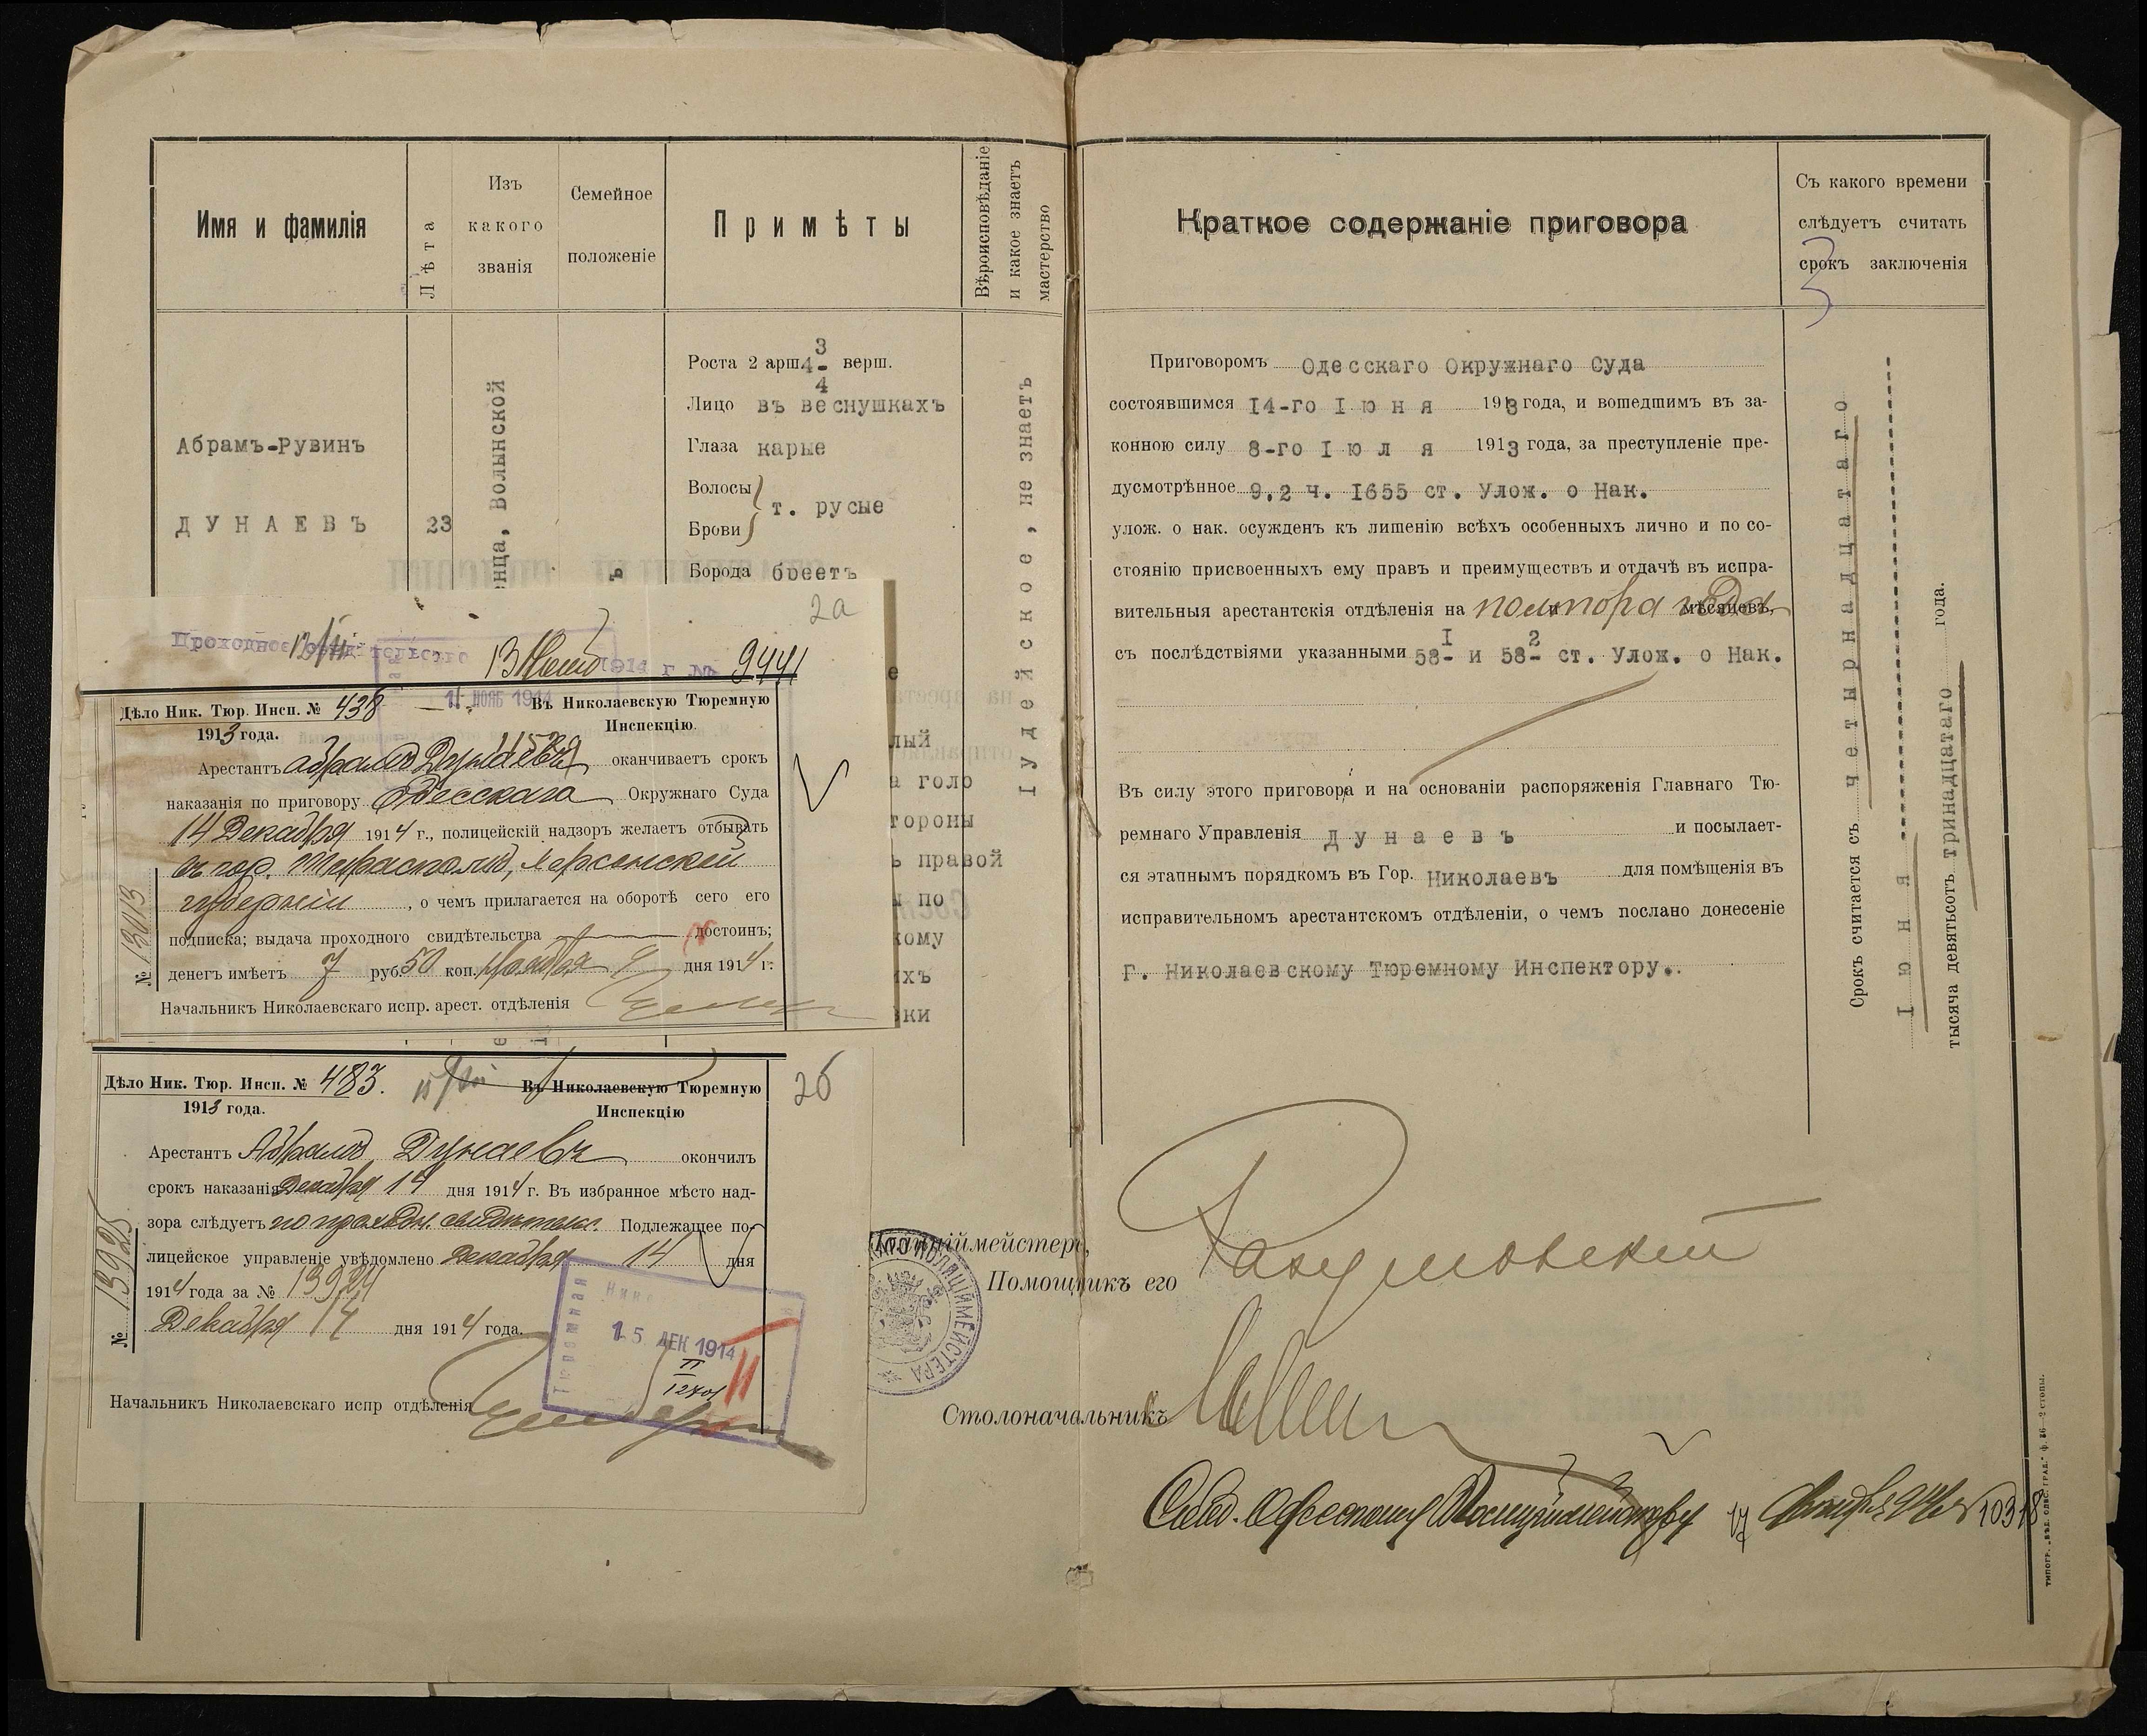 Имя и фамилія
Лѣта
Изъ
какого
званія
Семейное
положеніе
Примѣты
Вѣроисповѣданіе
и какое знаетъ
мастерство
Абрамъ-Рувинъ
ДУНАЕВЪ
23
Волынской
Роста 2 арш. 4 3/4 верш.
Лицо въ веснушкахъ
Глаза карые
Волосы
т. русые
Брови
Борода бреетъ
Іудейское, не знаетъ
е
лый
а голо
тороны
ь правой
ы по
кому
ихъ
ки
2а
Проходное свидѣтельство
1914 г № 9441
11 НОЯБ 1914
Дѣло Ник. Тюр. Инсп. № 438
Въ Николаевскую Тюремную
Инспекцію.
1913 года.
Арестантъ Абрамъ Дунаевъ оканчиваетъ срокъ
наказанія по приговору Одесскаго Окружнаго Суда
14 Декабря 1914 г., полицейскій надзоръ желаетъ отбывать
въ гор. Тирасполѣ, Херсонской
губерніи, о чемъ прилагается на оборотѣ сего его
подписка; выдача проходного свидѣтельства достоинъ;
денегъ имѣетъ 7 руб. 50 коп. Ноября 9 дня 1914 г.
Начальникъ Николаевскаго испр. арест. отдѣленія
№ 13013
2б
Дѣло Ник. Тюр. Инсп. № 483.
Въ Николаевскую Тюремную
Инспекцію
1913 года.
Арестантъ Абрамъ Дунаевъ окончилъ
срокъ наказанія Декабря 14 дня 1914 г. Въ избранное мѣсто над-
зора слѣдуетъ по проходн. свидѣтельс. Подлежащее по-
лицейское управленіе увѣдомлено Декабря 14 дня
1914 года за № 13924
Декабря 14 дня 1914 года.
№ 13925
Начальникъ Николаевскаго испр отдѣленія
15 ДЕК 1914
Краткое содержаніе приговора
Съ какого времени
слѣдуетъ считать
срокъ заключенія
3
Приговоромъ Одесскаго Окружнаго Суда
состоявшимся 14-го Іюня 1913 года, и вошедшимъ въ за-
конною силу 8-го Іюля 1913 года, за преступленіе пре-
дусмотрѣнное 9,2 ч. 1655 ст. Улож. о Нак.
улож. о нак. осужденъ къ лишенію всѣхъ особенныхъ лично и по со-
стоянію присвоенныхъ ему правъ и преимуществъ и отдачѣ въ испра-
вительныя арестантскія отдѣленія на полтора года мѣсяцевъ,
съ послѣдствіями указанными 58-I и 58-2 ст. Улож. о Нак.
Въ силу этого приговора и на основаніи распоряженія Главнаго Тю-
ремнаго Управленія Дунаевъ и посылает-
ся этапнымъ порядкомъ въ Гор. Николаевъ для помѣщенія въ
исправительномъ арестантскомъ отдѣленіи, о чемъ послано донесеніе
Г. Николаевскому Тюремному Инспектору.
Срокъ считается съ четырнадцатаго
Іюня
тысяча девятьсотъ тринадцатаго года.
Полиціймейстеръ,
Помощникъ его
Разумовскій
Столоначальникъ
10318